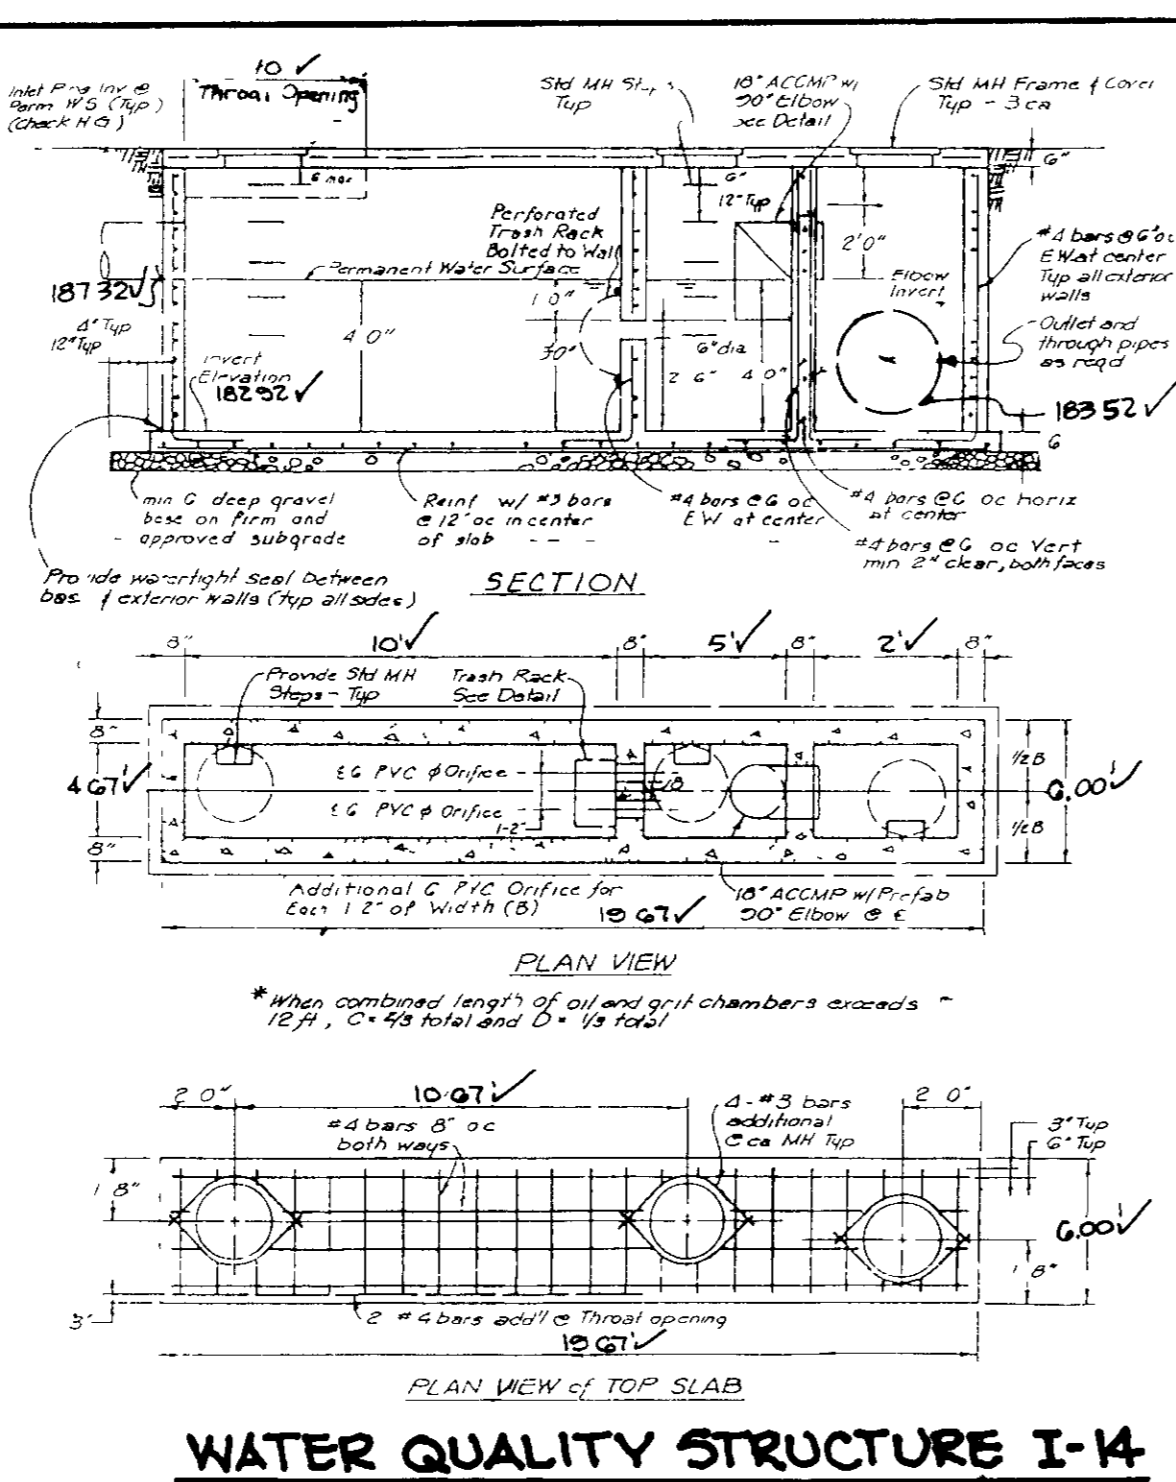 10 ✓
Throat Opening
Inlet Pipe Inv @
Perm WS (Typ)
(Check HG)
Std MH Steps
Typ
18" ACCMP w/
90° Elbow
see Detail
Std MH Frame & Cover
Typ - 3 ea
6"
6 max
6"
12" Typ
Perforated
Trash Rack
Bolted to Wall
Permanent Water Surface
2'0"
Elbow
Invert
#4 bars @ 6" oc
EW at center
Typ all exterior
walls
187 32 ✓
4" Typ
12" Typ
4 0"
1 0"
30"
6" dia
2 6"
4 0"
Outlet and
through pipes
as reqd
183 52 ✓
Invert
Elevation
182 92 ✓
6
min 6 deep gravel
base on firm and
approved subgrade
Reinf w/ #3 bars
@ 12" oc in center
of slab
#4 bars @ 6 oc
EW at center
#4 bars @ 6 oc horiz
at center
#4 bars @ 6 oc Vert
min 2" clear, both faces
Provide watertight seal between
bas & exterior walls (typ all sides)
SECTION
8"
10' ✓
8"
5' ✓
8"
2' ✓
8"
Provide Std MH
Steps - Typ
Trash Rack
See Detail
8"
4 67' ✓
8"
6 PVC φ Orifice
6 PVC φ Orifice
1-2"
18
1/2 B
6.00' ✓
1/2 B
Additional 6 PVC Orifice for
Each 1 2" of Width (B)
18" ACCMP w/ Prefab
90° Elbow @ ℄
19 67' ✓
PLAN VIEW
* When combined length of oil and grit chambers exceeds
12 ft, C = 2/3 total and D = 1/3 total
2 0"
10 67' ✓
2 0"
#4 bars 8" oc
both ways
4 - #3 bars
additional
@ ea MH Typ
3" Typ
6" Typ
1 8"
6.00' ✓
1 8"
3"
2 #4 bars add'l @ Throat opening
19 67' ✓
PLAN VIEW of TOP SLAB
WATER QUALITY STRUCTURE I-14